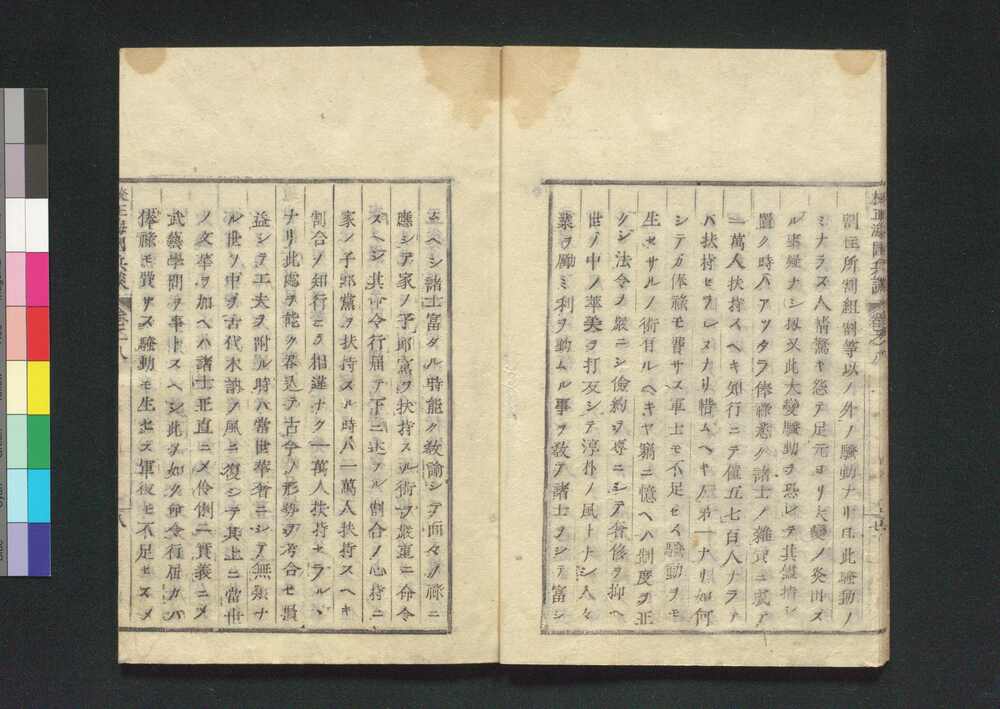 割庄所割組割等以ノ外ノ騒動ナリ且此騒動ノ
ミナラス人情驚キ怒テ足元ヨリ大變ノ発出ス
ル事疑ナシ扨又此大變騒動ヲ恐レテ其儘指シ
置ク時ハアツタラ俸禄悉ク諸士ノ雑費ニ成テ
一萬人扶持スヘキ知行ニテ僅五七百人ナラテ
ハ扶持セラレヌナリ惜ムヘキノ第一ナリ如何
シテカ俸禄モ費サス軍士モ不足セス騒動ヲモ
生セサルノ術有ルヘキヤ竊ニ憶ヘハ制度ヲ正
クシ法令ヲ嚴ニシ儉約ヲ専ニシテ奢侈ヲ抑ヘ
世ノ中ノ華美ヲ打反シテ淳朴ノ風トナシ人々
業ヲ勵ミ利ヲ動ムル事ヲ教テ諸士ヲシテ富シ
ムヘシ諸士富タル時能ク教諭シテ面々ノ禄ニ
應シテ家ノ子郎黨ヲ扶持スル術ヲ嚴重ニ命令
スヘシ其命令行届テ下ニ述フル割合ノ心持ニ
家ノ子郎黨ヲ扶持スル時ハ一萬人扶持スヘキ
割合ノ知行ニテ相違ナク一萬人扶持セラルヽ
ナリ此處ヲ能ク呑込テ古今ノ形勢ヲ考合セ損
益シテ工夫ヲ附ル時ハ當世華奢ニシテ無頼ナ
ル世ノ中ヲ古代木訥ノ風ニ復シテ其上ニ當世
ノ文華ヲ加ヘハ諸士正直ニメ伶俐ニ實義ニメ
武藝學問ヲ事トスヘシ此ノ如ク命令行届カハ
俸禄モ費サス騒動モ生セス軍役モ不足セスメ